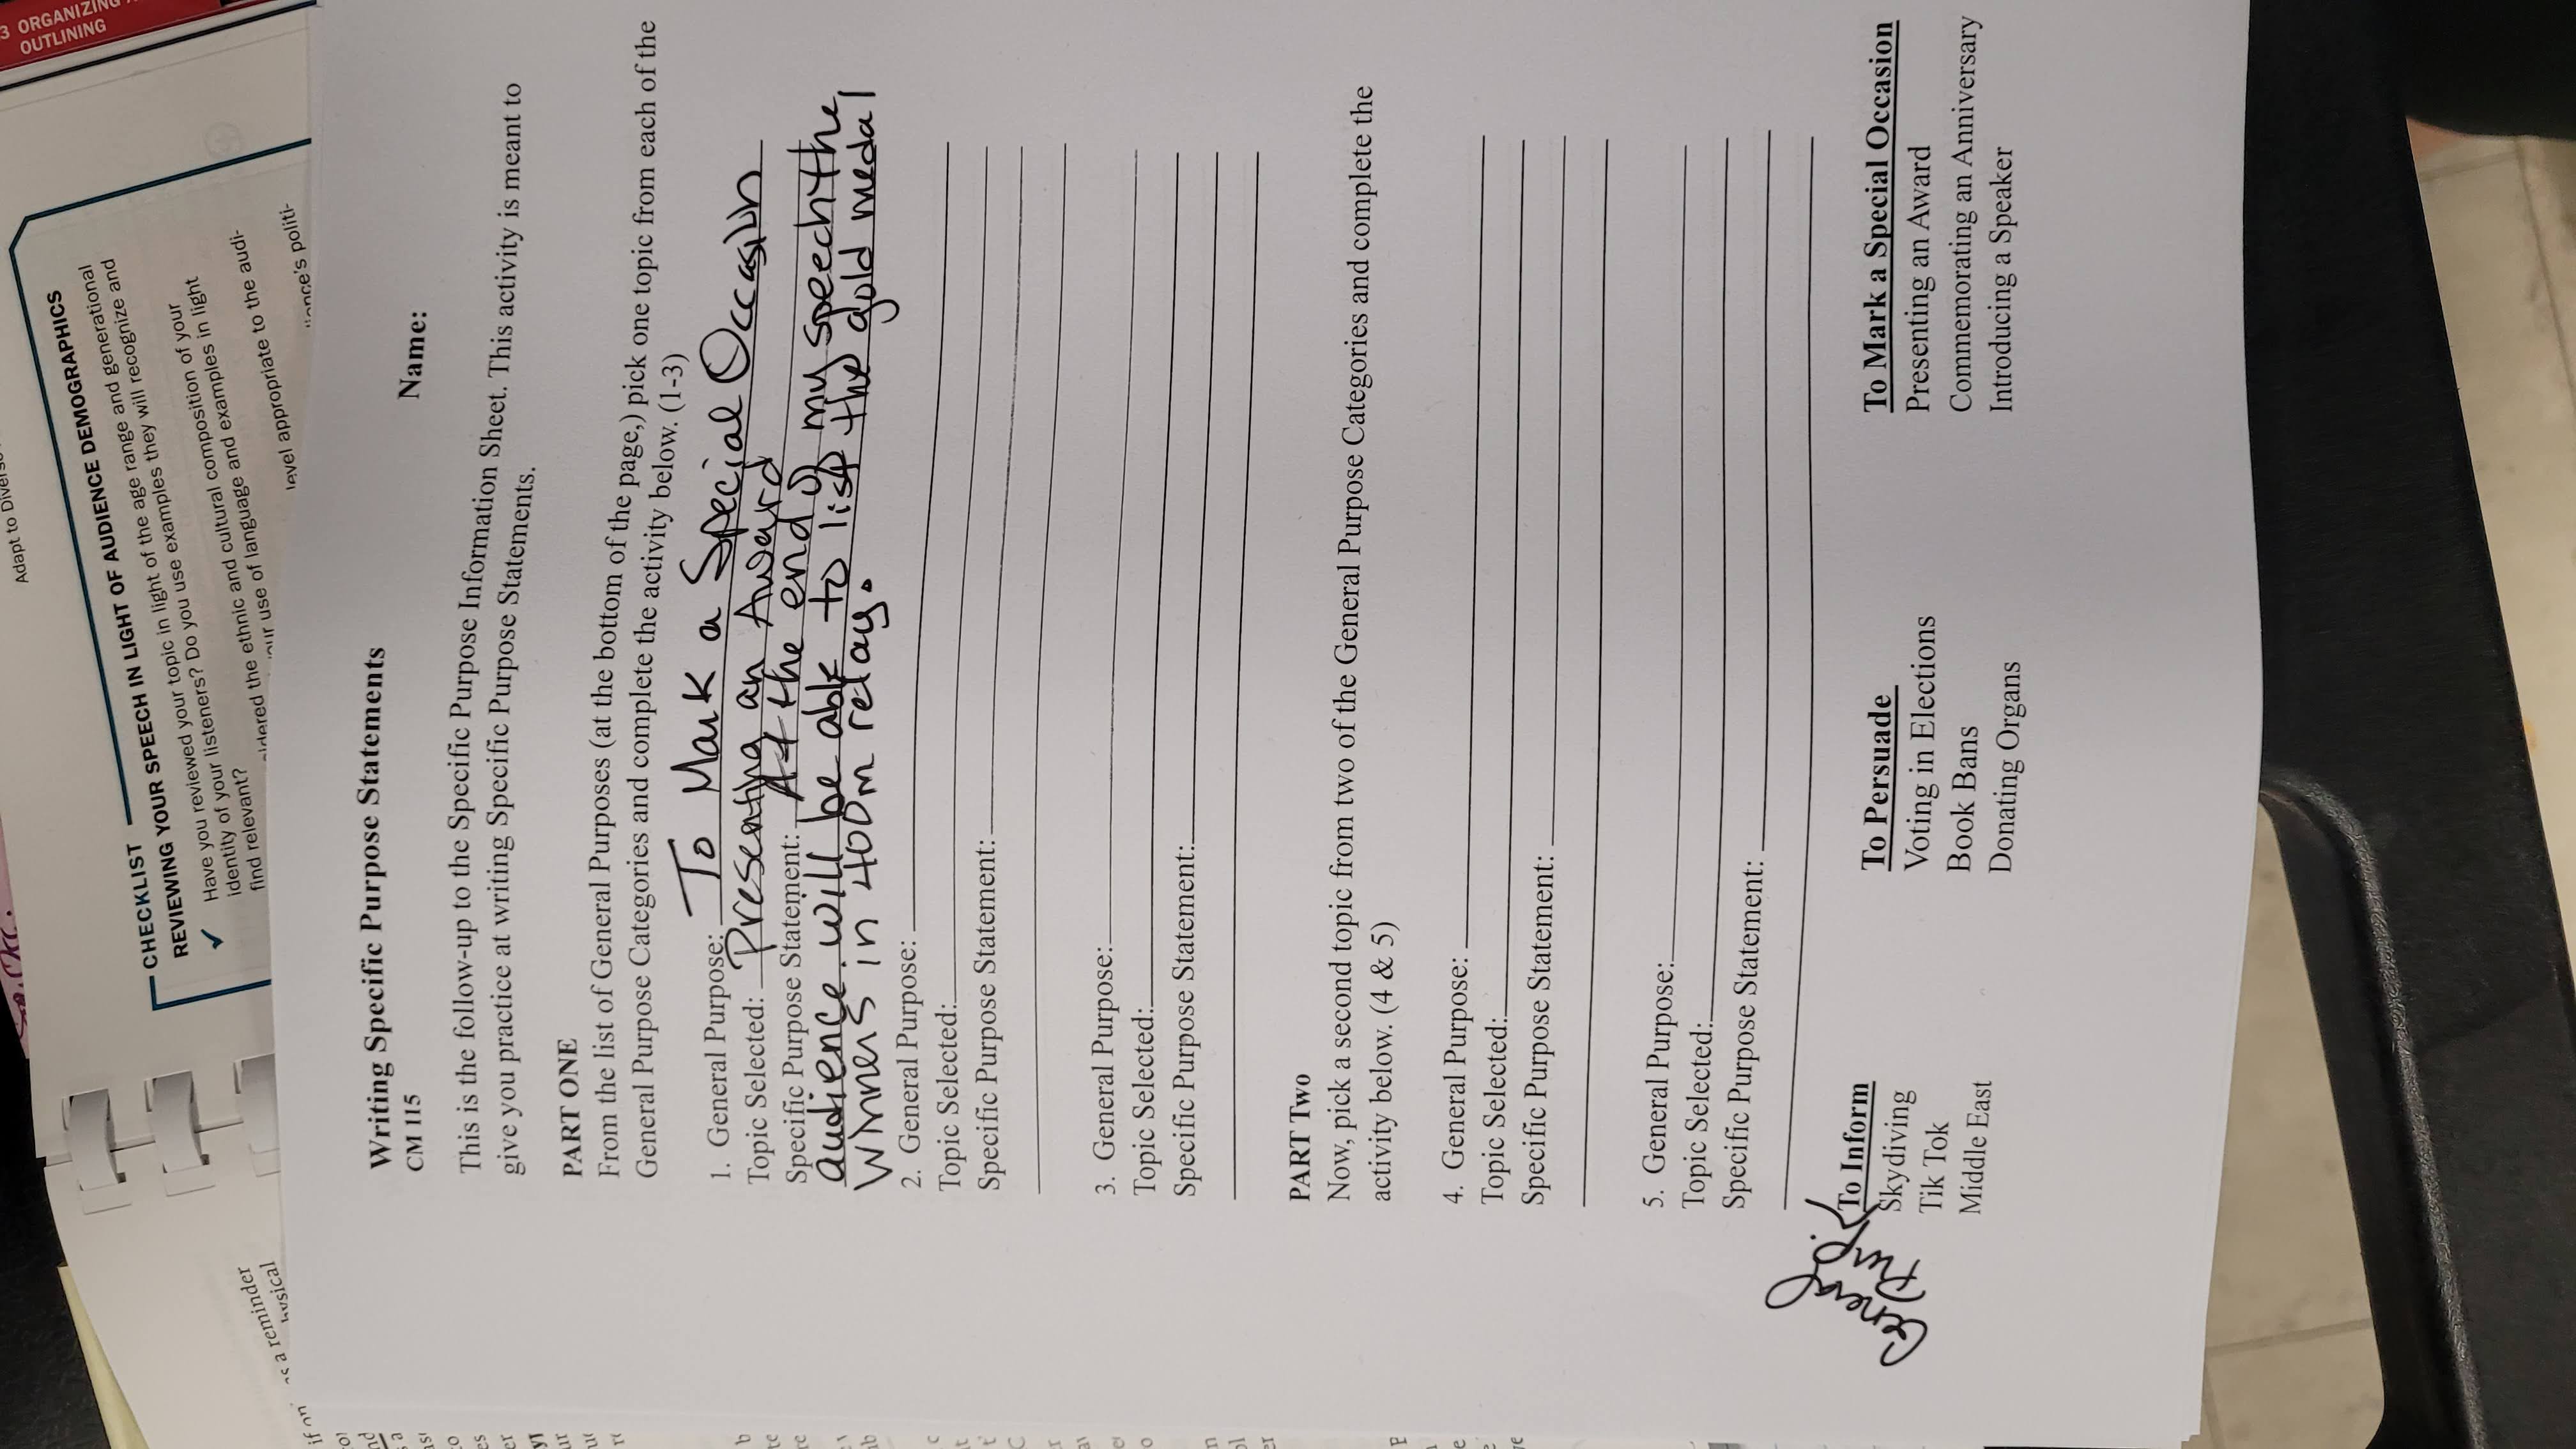 3 ORGANIZING
OUTLINING
Adapt to Divers
CHECKLIST
REVIEWING YOUR SPEECH IN LIGHT OF AUDIENCE DEMOGRAPHICS
✓ Have you reviewed your topic in light of the age range and generational
identity of your listeners? Do you use examples they will recognize and
find relevant?
ethnic and cultural composition of your
use of language and examples in light
level appropriate to the audi-
politi-
as a reminder
Writing Specific Purpose Statements
CM 115
Name:
This is the follow-up to the Specific Purpose Information Sheet. This activity is meant to
give you practice at writing Specific Purpose Statements.
PART ONE
From the list of General Purposes (at the bottom of the page,) pick one topic from each of the
General Purpose Categories and complete the activity below. (1-3)
1. General Purpose: To Mark a Special Occasion
Topic Selected: Presenting an Award
Specific Purpose Statement: At the end of my speech the
audience will be able to list the gold medal
winners in 400m relay.
2. General Purpose:
Topic Selected:
Specific Purpose Statement:
3. General Purpose:
Topic Selected:
Specific Purpose Statement:
PART Two
Now, pick a second topic from two of the General Purpose Categories and complete the
activity below. (4 & 5)
4. General Purpose:
Topic Selected:
Specific Purpose Statement:
5. General Purpose:
Topic Selected:
Specific Purpose Statement:
General
Purp.
To Inform
Skydiving
Tik Tok
Middle East
To Persuade
Voting in Elections
Book Bans
Donating Organs
To Mark a Special Occasion
Presenting an Award
Commemorating an Anniversary
Introducing a Speaker